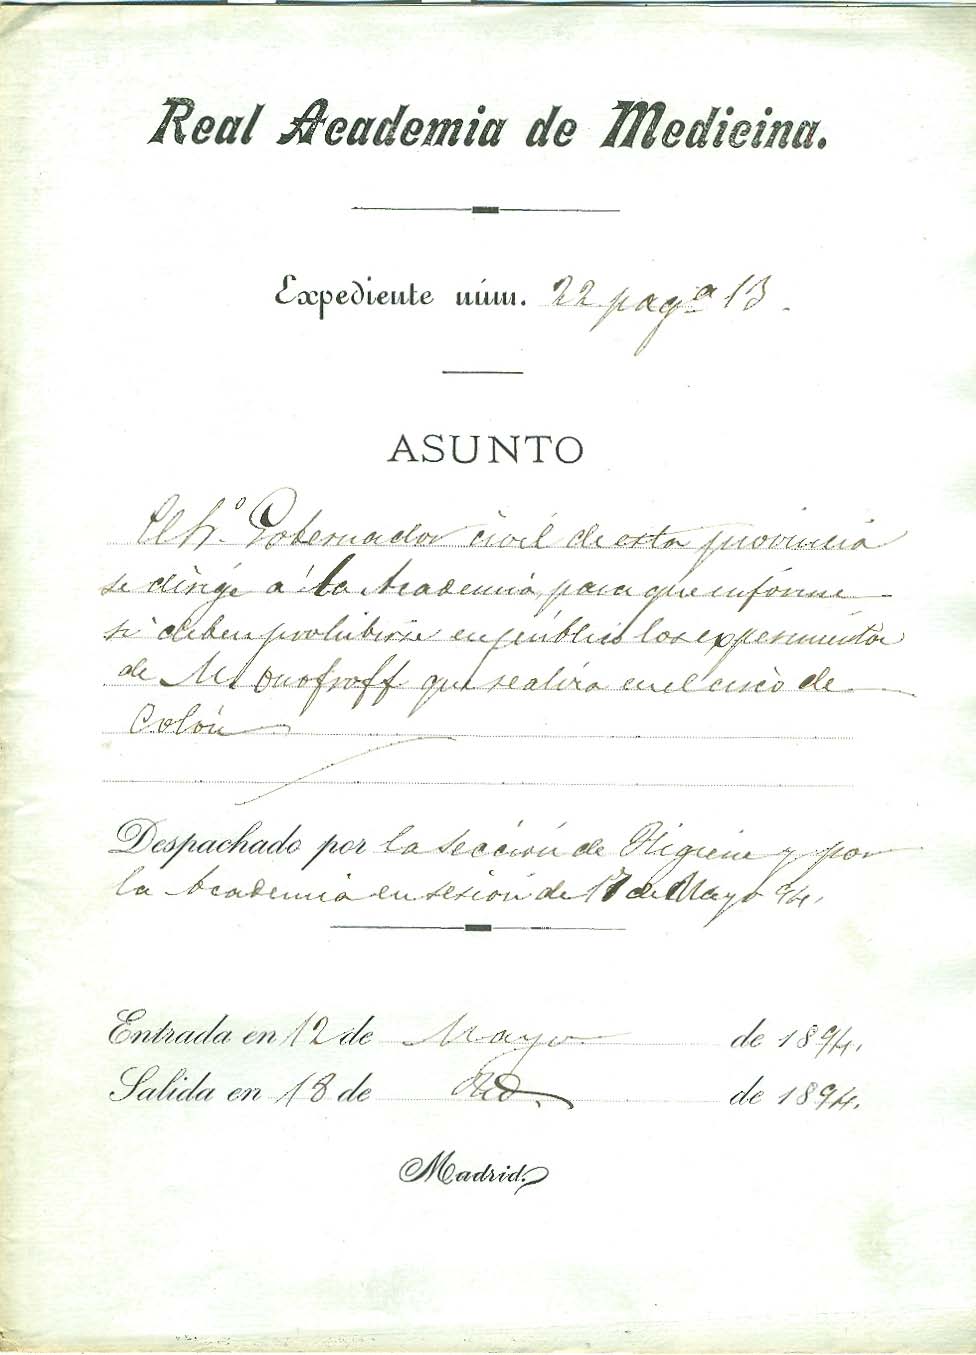 Real Academia de Medicina.
Expediente núm. 22 pagª 13.
ASUNTO
El Sr. Gobernador civil de esta provincia
se dirige a la Academia, para que informe
si deben prohibirse en público los experimentos
de Mr. Onofroff que realiza en el circo de
Colón
Despachado por la sección de Higiene y por
la Academia en sesión de 17 de Mayo 94.
Entrada en 12 de Mayo de 1894.
Salida en 18 de id. de 1894.
Madrid.